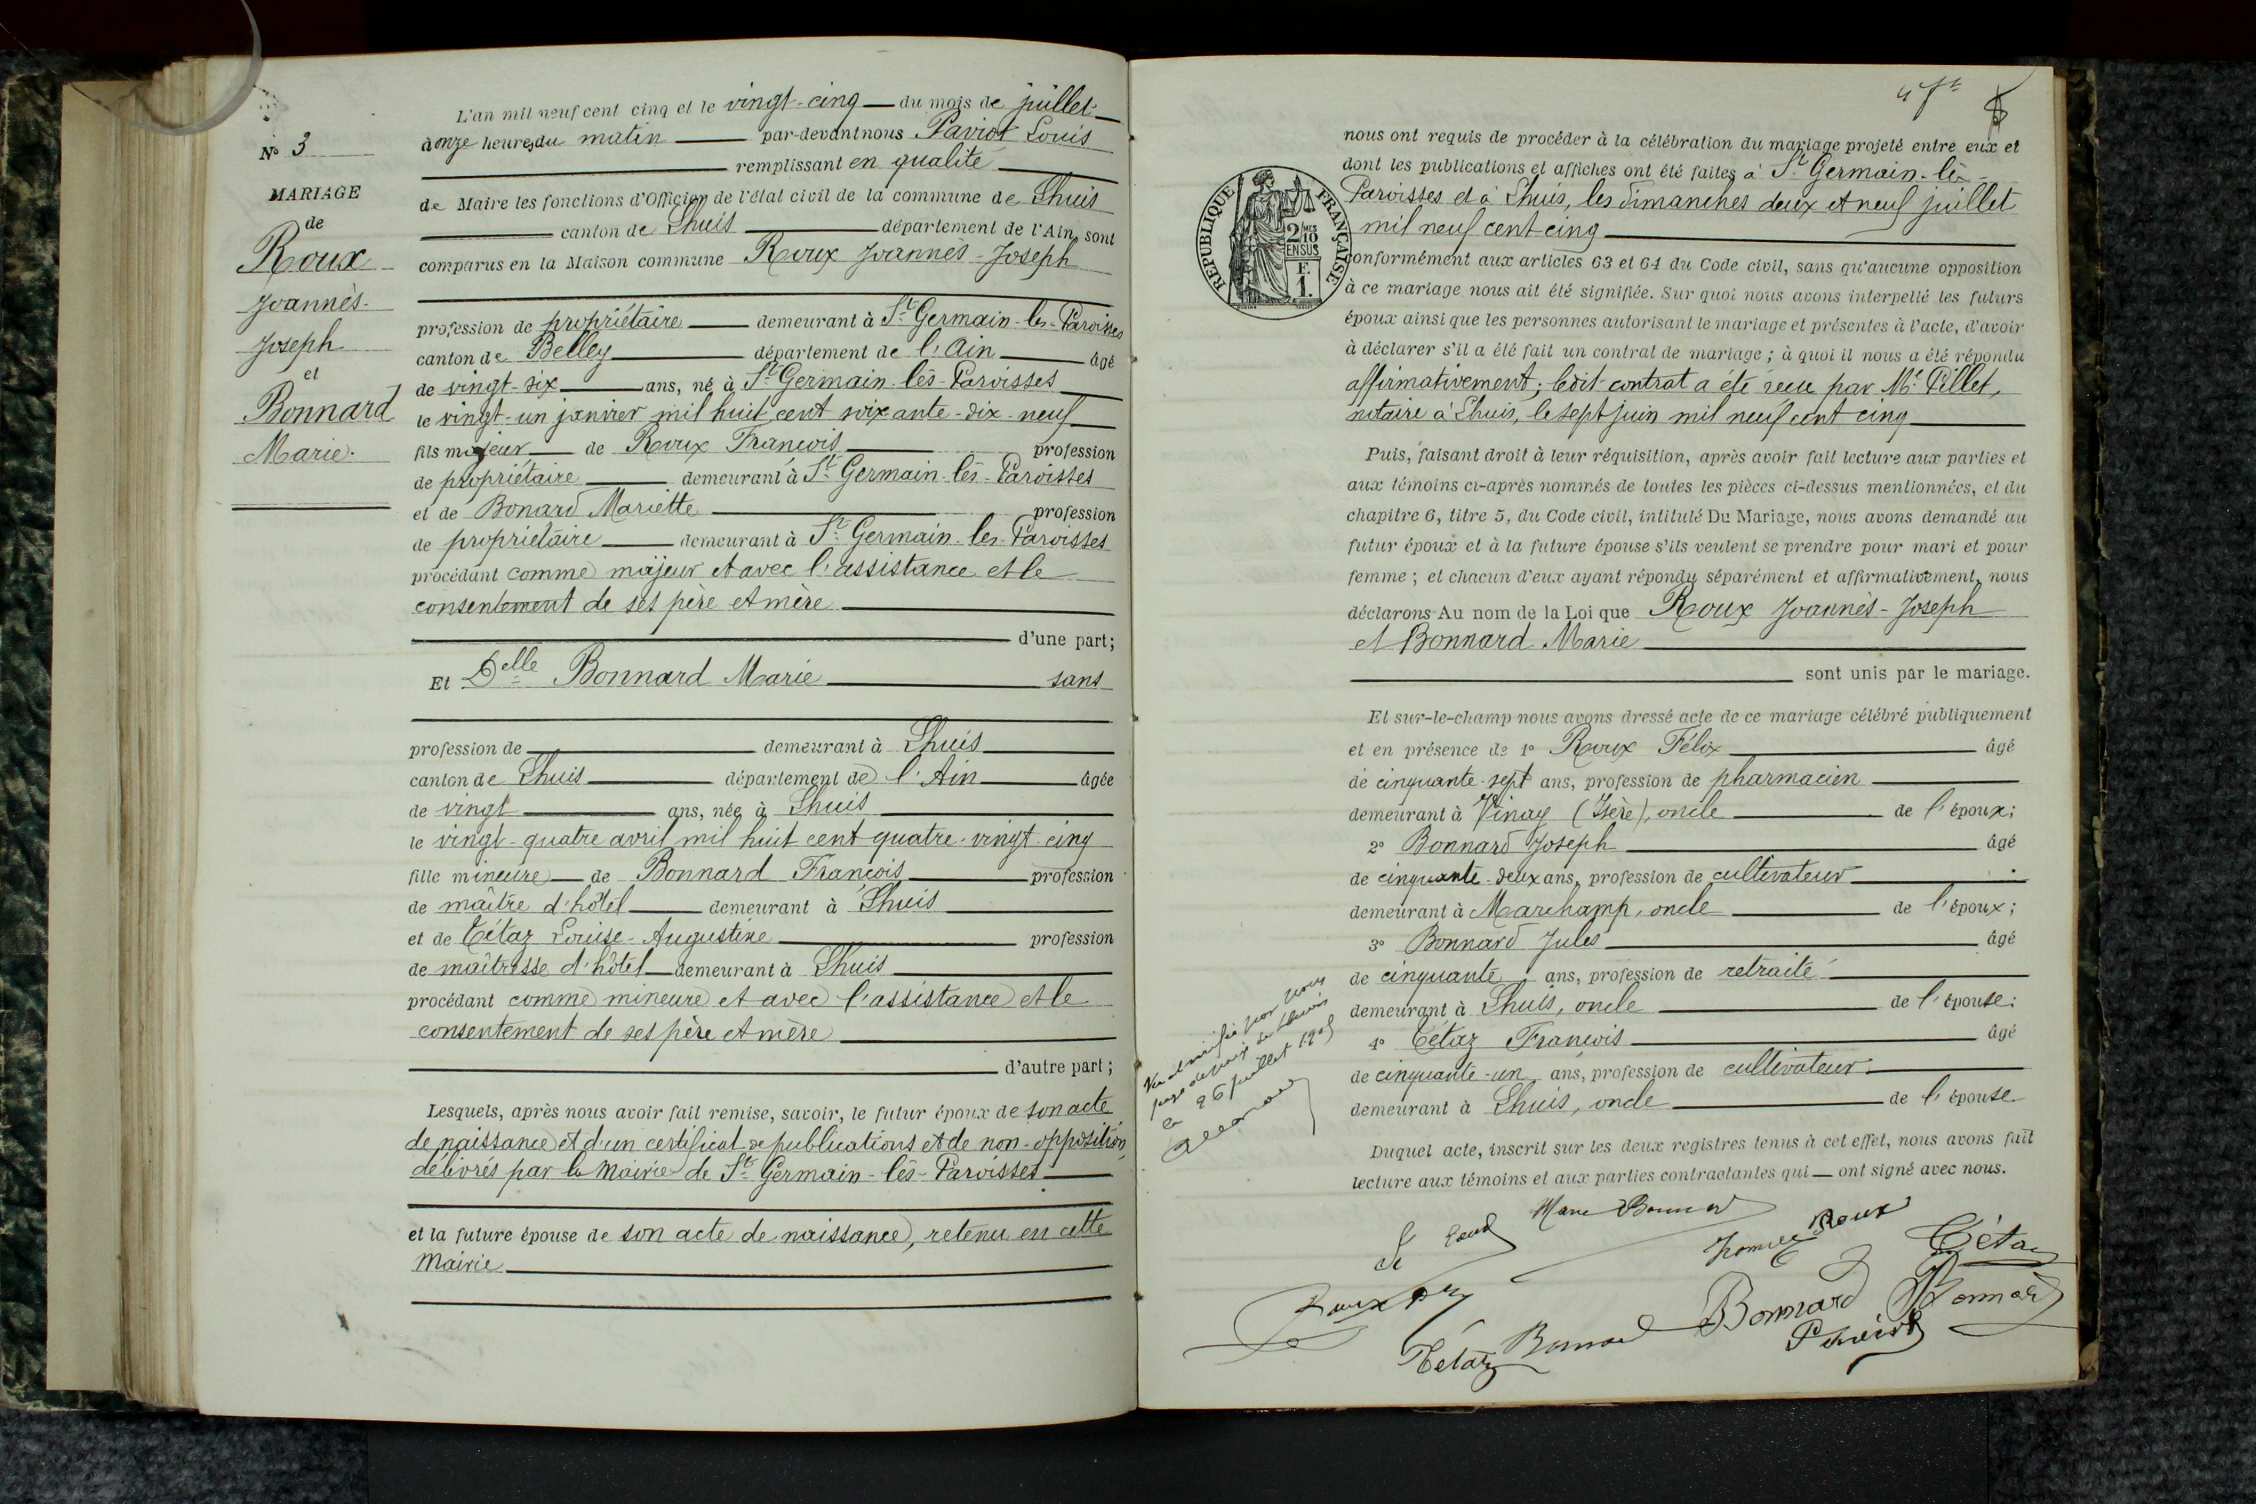 N° 3
MARIAGE
de
Roux
Joannès-
Joseph
et
Bonnard
Marie.
L'an mil neuf cent cinq et le vingt-cinq du mois de juillet
à onze heures du matin par-devant nous Paviot Louis
remplissant en qualité
de Maire les fonctions d'Officier de l'état civil de la commune de Lhuis
canton de Lhuis département de l'Ain, sont
comparus en la Maison commune Roux Joannès-Joseph
profession de propriétaire demeurant à St Germain-les-Paroisses
canton de Belley département de l'Ain âgé
de vingt-six ans, né à St Germain-lès-Paroisses
le vingt-un janvier mil huit cent soixante-dix-neuf
fils majeur de Roux François profession
de propriétaire demeurant à St Germain-lès-Paroisses
et de Bonard Mariette profession
de propriétaire demeurant à St Germain-les-Paroisses
procédant comme majeur et avec l'assistance et le
consentement de ses père et mère
d'une part;
Et Delle Bonnard Marie sans
profession de demeurant à Lhuis
canton de Lhuis département de l'Ain âgée
de vingt ans, née à Lhuis
le vingt-quatre avril mil huit cent quatre-vingt-cinq
fille mineure de Bonnard François profession
de maître d'hôtel demeurant à Lhuis
et de Tétaz Louise-Augustine profession
de maîtresse d'hôtel demeurant à Lhuis
procédant comme mineure et avec l'assistance et le
consentement de ses père et mère
d'autre part;
Lesquels, après nous avoir fait remise, savoir, le futur époux de son acte
de naissance et d'un certificat de publications et de non-opposition,
délivrés par la Mairie de St Germain-lès-Paroisses
et la future épouse de son acte de naissance, retenu en cette
Mairie
RÉPUBLIQUE FRANÇAISE
2/10 EN SUS
F. 1.
nous ont requis de procéder à la célébration du mariage projeté entre eux et
dont les publications et affiches ont été faites à St Germain-lès-
Paroisses et à Lhuis, les dimanches deux et neuf juillet
mil neuf cent cinq
conformément aux articles 63 et 64 du Code civil, sans qu'aucune opposition
à ce mariage nous ait été signifiée. Sur quoi nous avons interpellé les futurs
époux ainsi que les personnes autorisant le mariage et présentes à l'acte, d'avoir
à déclarer s'il a été fait un contrat de mariage; à quoi il nous a été répondu
affirmativement; ledit contrat a été reçu par Me Pillet,
notaire à Lhuis, le sept juin mil neuf cent cinq
Puis, faisant droit à leur réquisition, après avoir fait lecture aux parties et
aux témoins ci-après nommés de toutes les pièces ci-dessus mentionnées, et du
chapitre 6, titre 5, du Code civil, intitulé Du Mariage, nous avons demandé au
futur époux et à la future épouse s'ils veulent se prendre pour mari et pour
femme; et chacun d'eux ayant répondu séparément et affirmativement, nous
déclarons Au nom de la Loi que Roux Joannès-Joseph
et Bonnard Marie
sont unis par le mariage.
Et sur-le-champ nous avons dressé acte de ce mariage célébré publiquement
et en présence de 1° Roux Félix âgé
de cinquante-sept ans, profession de pharmacien
demeurant à Vinay (Isère), oncle de l'époux;
2° Bonnard Joseph âgé
de cinquante-deux ans, profession de cultivateur
demeurant à Marchamp, oncle de l'époux;
3° Bonnard Jules âgé
de cinquante ans, profession de retraité
demeurant à Lhuis, oncle de l'épouse;
4° Tétaz François âgé
de cinquante-un ans, profession de cultivateur
demeurant à Lhuis, oncle de l'épouse
Duquel acte, inscrit sur les deux registres tenus à cet effet, nous avons fait
lecture aux témoins et aux parties contractantes qui ont signé avec nous.
Vu et vérifié par nous
juge de paix de Lhuis
le 26 juillet 1905
Marie Bonnard
Roux
Tétaz
Roux
Bonnard
Bonnard
Tétaz
Bonnard
Paviot